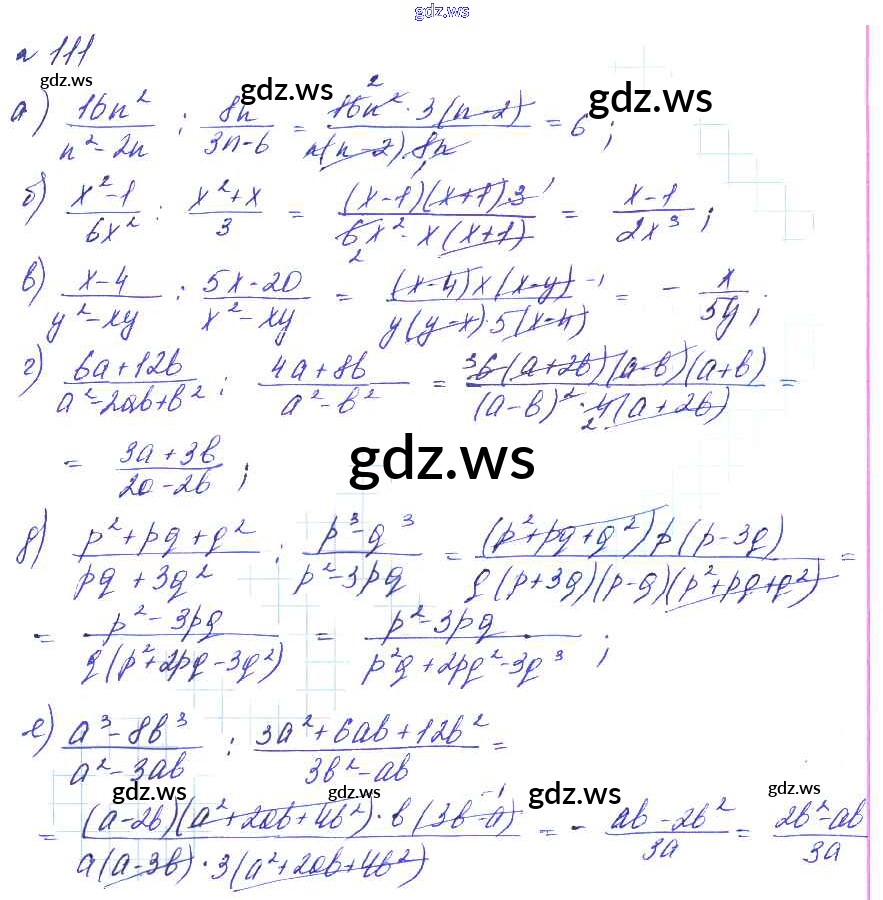 gdz.ws
№ 111
gdz.ws gdz.ws gdz.ws
а) 16n²/(n²-2n) : 8n/(3n-6) = 16n²·3(n-2)/(n(n-2)·8n) = 6;
б) (x²-1)/6x² : (x²+x)/3 = (x-1)(x+1)·3/(6x²·x(x+1)) = (x-1)/2x³;
в) (x-4)/(y²-xy) : (5x-20)/(x²-xy) = (x-4)x(x-y)/(y(y-x)·5(x-4)) = - x/5y;
г) (6a+12b)/(a²-2ab+b²) : (4a+8b)/(a²-b²) = 6(a+2b)(a-b)(a+b)/((a-b)²·4(a+2b)) =
= (3a+3b)/(2a-2b);
gdz.ws
д) (p²+pq+q²)/(pq+3q²) : (p³-q³)/(p²-3pq) = (p²+pq+q²)p(p-3q)/(q(p+3q)(p-q)(p²+pq+q²)) =
= (p²-3pq)/(q(p²+2pq-3q²)) = (p²-3pq)/(p²q+2pq²-3q³);
е) (a³-8b³)/(a²-3ab) : (3a²+6ab+12b²)/(3b²-ab) =
gdz.ws gdz.ws gdz.ws
= (a-2b)(a²+2ab+4b²)·b(3b-a)/(a(a-3b)·3(a²+2ab+4b²)) = - (ab-2b²)/3a = (2b²-ab)/3a